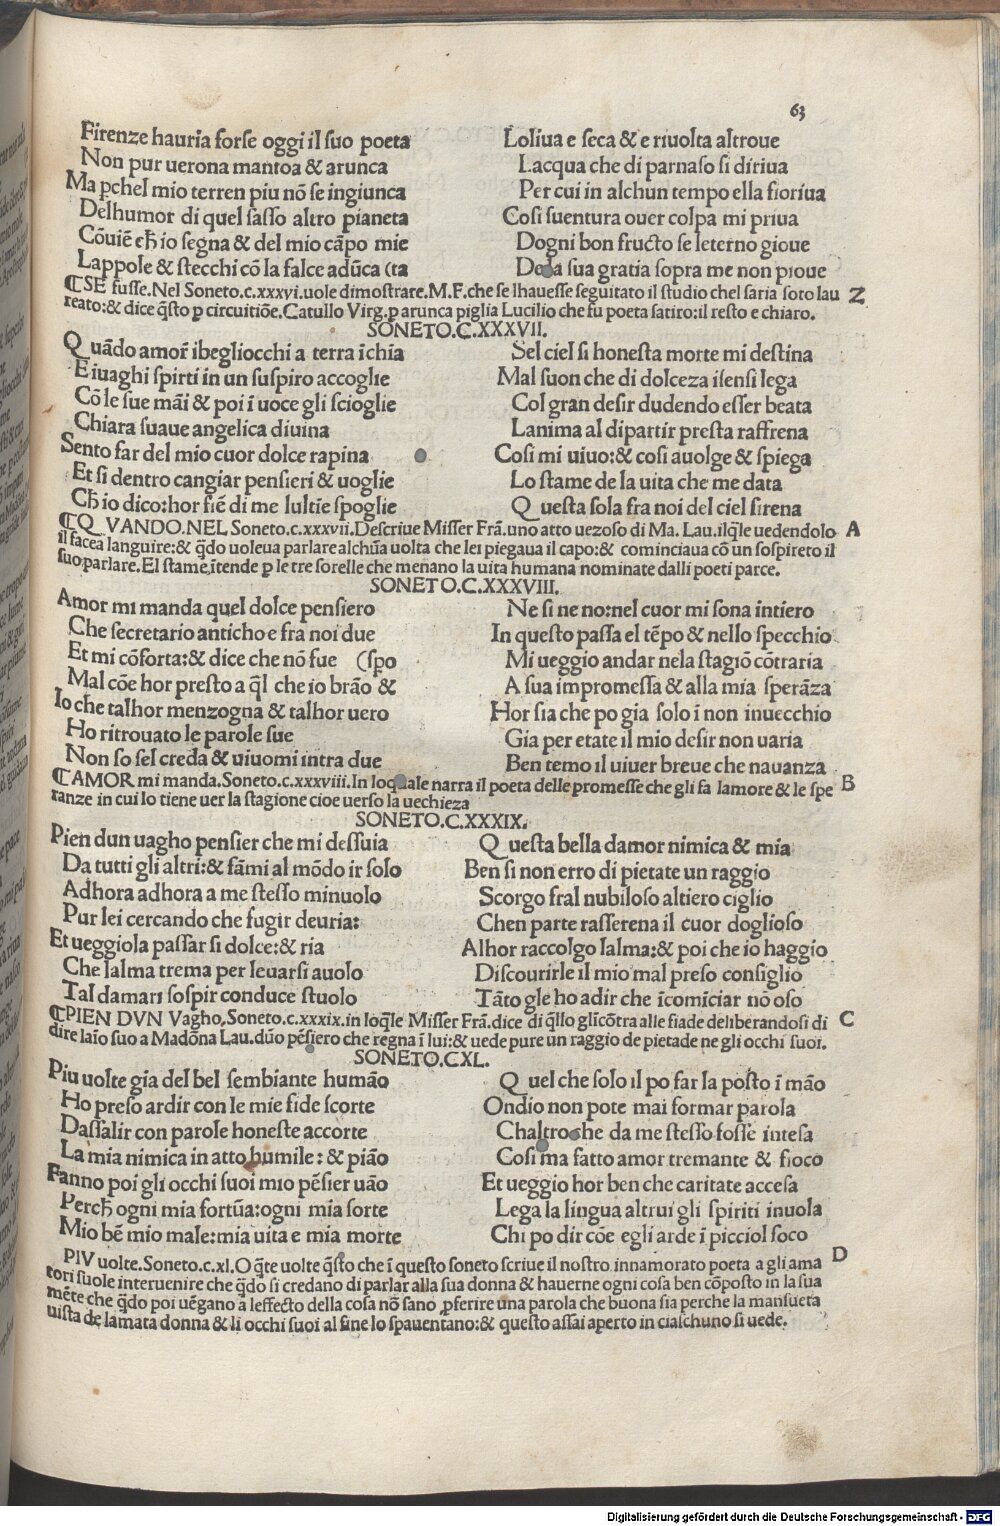 63
Firenze hauria forse oggi il suo poeta
Non pur uerona mantoa & arunca
Ma ꝑchel mio terren piu nō se ingiunca
Delhumor di quel sasso altro pianeta
Cōuiē cħ io segna & del mio cāpo mie
Lappole & stecchi cō la falce adūca (ta
Loliua e seca & e riuolta altroue
Lacqua che di parnaso si diriua
Per cui in alchun tempo ella fioriua
Cosi suentura ouer colpa mi priua
Dogni bon fructo se leterno gioue
Dela sua gratia sopra me non pioue
⁋SE fusse. Nel Soneto.c.xxxvi.uole dimostrare.M.F.che se lhauesse seguitato il studio chel saria soto lau Z
reato:& dice q̄sto ꝑ circuitiōe. Catullo Virg.ꝑ arunca piglia Lucilio che fu poeta satiro:il resto e chiaro.
SONETO.C.XXXVII.
Quādo amor̄ ibegliocchi a terra ichīa
E iuaghi spirti in un suspiro accoglie
Cō le sue māi & poi ī uoce gli scioglie
Chiara suaue angelica diuina
Sento far del mio cuor dolce rapina
Et si dentro cangiar pensieri & uoglie
Cħ io dico:hor fiē di me lultīe spoglie
Sel ciel si honesta morte mi destina
Mal suon che di dolceza isensi lega
Col gran desir dudendo esser beata
Lanima al dipartir presta raffrena
Cosi mi uiuo:& cosi auolge & spiega
Lo stame de la uita che me data
Questa sola fra noi del ciel sirena
⁋QVANDO.NEL Soneto.c.xxxvii.Descriue Misser Frā.uno atto uezoso di Ma. Lau.ilq̄le uedendolo A
il facea languire:& q̄do uoleua parlare alchūa uolta che lei piegaua il capo:& cominciaua cō un sospireto il
suo parlare. El stame,ītende ꝑ le tre sorelle che menano la uita humana nominate dalli poeti parce.
SONETO.C.XXXVIII.
Amor mi manda quel dolce pensiero
Che secretario anticho e fra noi due
Et mi cōforta:& dice che nō fue (spo
Mal cōe hor presto a q̄l che io brāo &
Io che talhor menzogna & talhor uero
Ho ritrouato le parole sue
Non so sel creda & uiuomi intra due
Ne si ne no:nel cuor mi sona intiero
In questo passa el tēpo & nello specchio
Mi ueggio andar nela stagiō cōtraria
A sua impromessa & alla mia sperāza
Hor sia che po gia solo ī non inuecchio
Gia per etate il mio desir non uaria
Ben temo il uiuer breue che nauanza
⁋AMOR mi manda.Soneto.c.xxxviii.In loquale narra il poeta delle promesse che gli fa lamore & le spe B
ranze in cui lo tiene uer la stagione cioe uerso la uechieza
SONETO.C.XXXIX.
Pien dun uagho pensier che mi dessuia
Da tutti gli altri:& fāmi al mōdo ir solo
Adhora adhora a me stesso minuolo
Pur lei cercando che fugir deuria:
Et ueggiola passar si dolce:& ria
Che lalma trema per leuarsi auolo
Tal damari sospir conduce stuolo
Questa bella damor nimica & mia
Ben si non erro di pietate un raggio
Scorgo fral nubiloso altiero ciglio
Chen parte rasserena il cuor doglioso
Alhor raccolgo lalma:& poi che io haggio
Discourirle il mio mal preso consiglio
Tāto gle ho adir che īcomiciar nō oso
⁋PIEN DVN Vagho,Soneto.c.xxxix.in loq̄le Misser Frā.dice di q̄llo glīcōtra alle fiade deliberandosi di C
dire laīo suo a Madōna Lau. dūo pēsiero che regna ī lui:& uede pure un raggio de pietade ne gli occhi suoi.
SONETO.CXL.
Piu uolte gia del bel sembiante humāo
Ho preso ardir con le mie fide scorte
Dassalir con parole honeste accorte
La mia nimica in atto humile:& piāo
Fanno poi gli occhi suoi mio pēsier uāo
Percħ ogni mia fortūa:ogni mia sorte
Mio bē mio male:mia uita e mia morte
Quel che solo il po far la posto ī māo
Ondio non pote mai formar parola
Chaltro che da me stesso fosse intesa
Cosi ma fatto amor tremante & fioco
Et ueggio hor ben che caritate accesa
Lega la lingua altrui gli spiriti inuola
Chi po dir cōe egli arde ī picciol foco
PIV uolte.Soneto.c.xl.O q̄te uolte q̄sto che ī questo soneto scriue il nostro innamorato poeta a gli ama D
tori suole interuenire che q̄do si credano di parlar alla sua donna & hauerne ogni cosa ben cōposto in la sua
mēte che q̄do poi uēgano a leffecto della cosa nō sano ꝓferire una parola che buona sia perche la mansueta
uista de lamata donna & li occhi suoi al fine lo spauentano:& questo assai aperto in ciaschuno si uede.
Digitalisierung gefördert durch die Deutsche Forschungsgemeinschaft - DFG